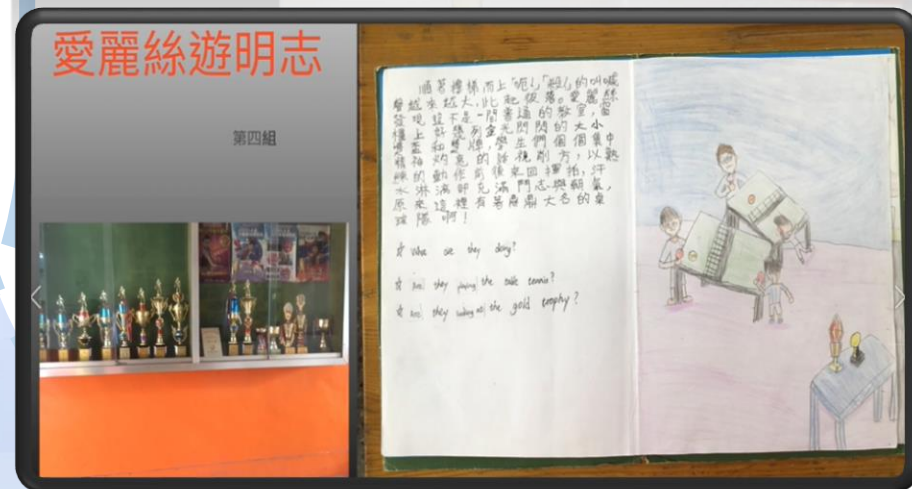 愛麗絲遊明志
第四組
順著樓梯而上「呃!」「殺!」的叫喊
聲越來越大,此起彼落。愛麗絲
發現這不是一間普通的教室,窗
櫃上好幾列金光閃閃的大小
獎盃和獎牌,學生們個個集中
精神灼亮的 視前方,以熟
練的動作前後來回揮拍,汗
水淋漓卻充滿鬥志與朝氣,
原來這裡有 鼎大名的桌
球隊啊!
☆ What are they doing?
☆ Are they playing the table tennis?
☆ Are they looking at the gold trophy?